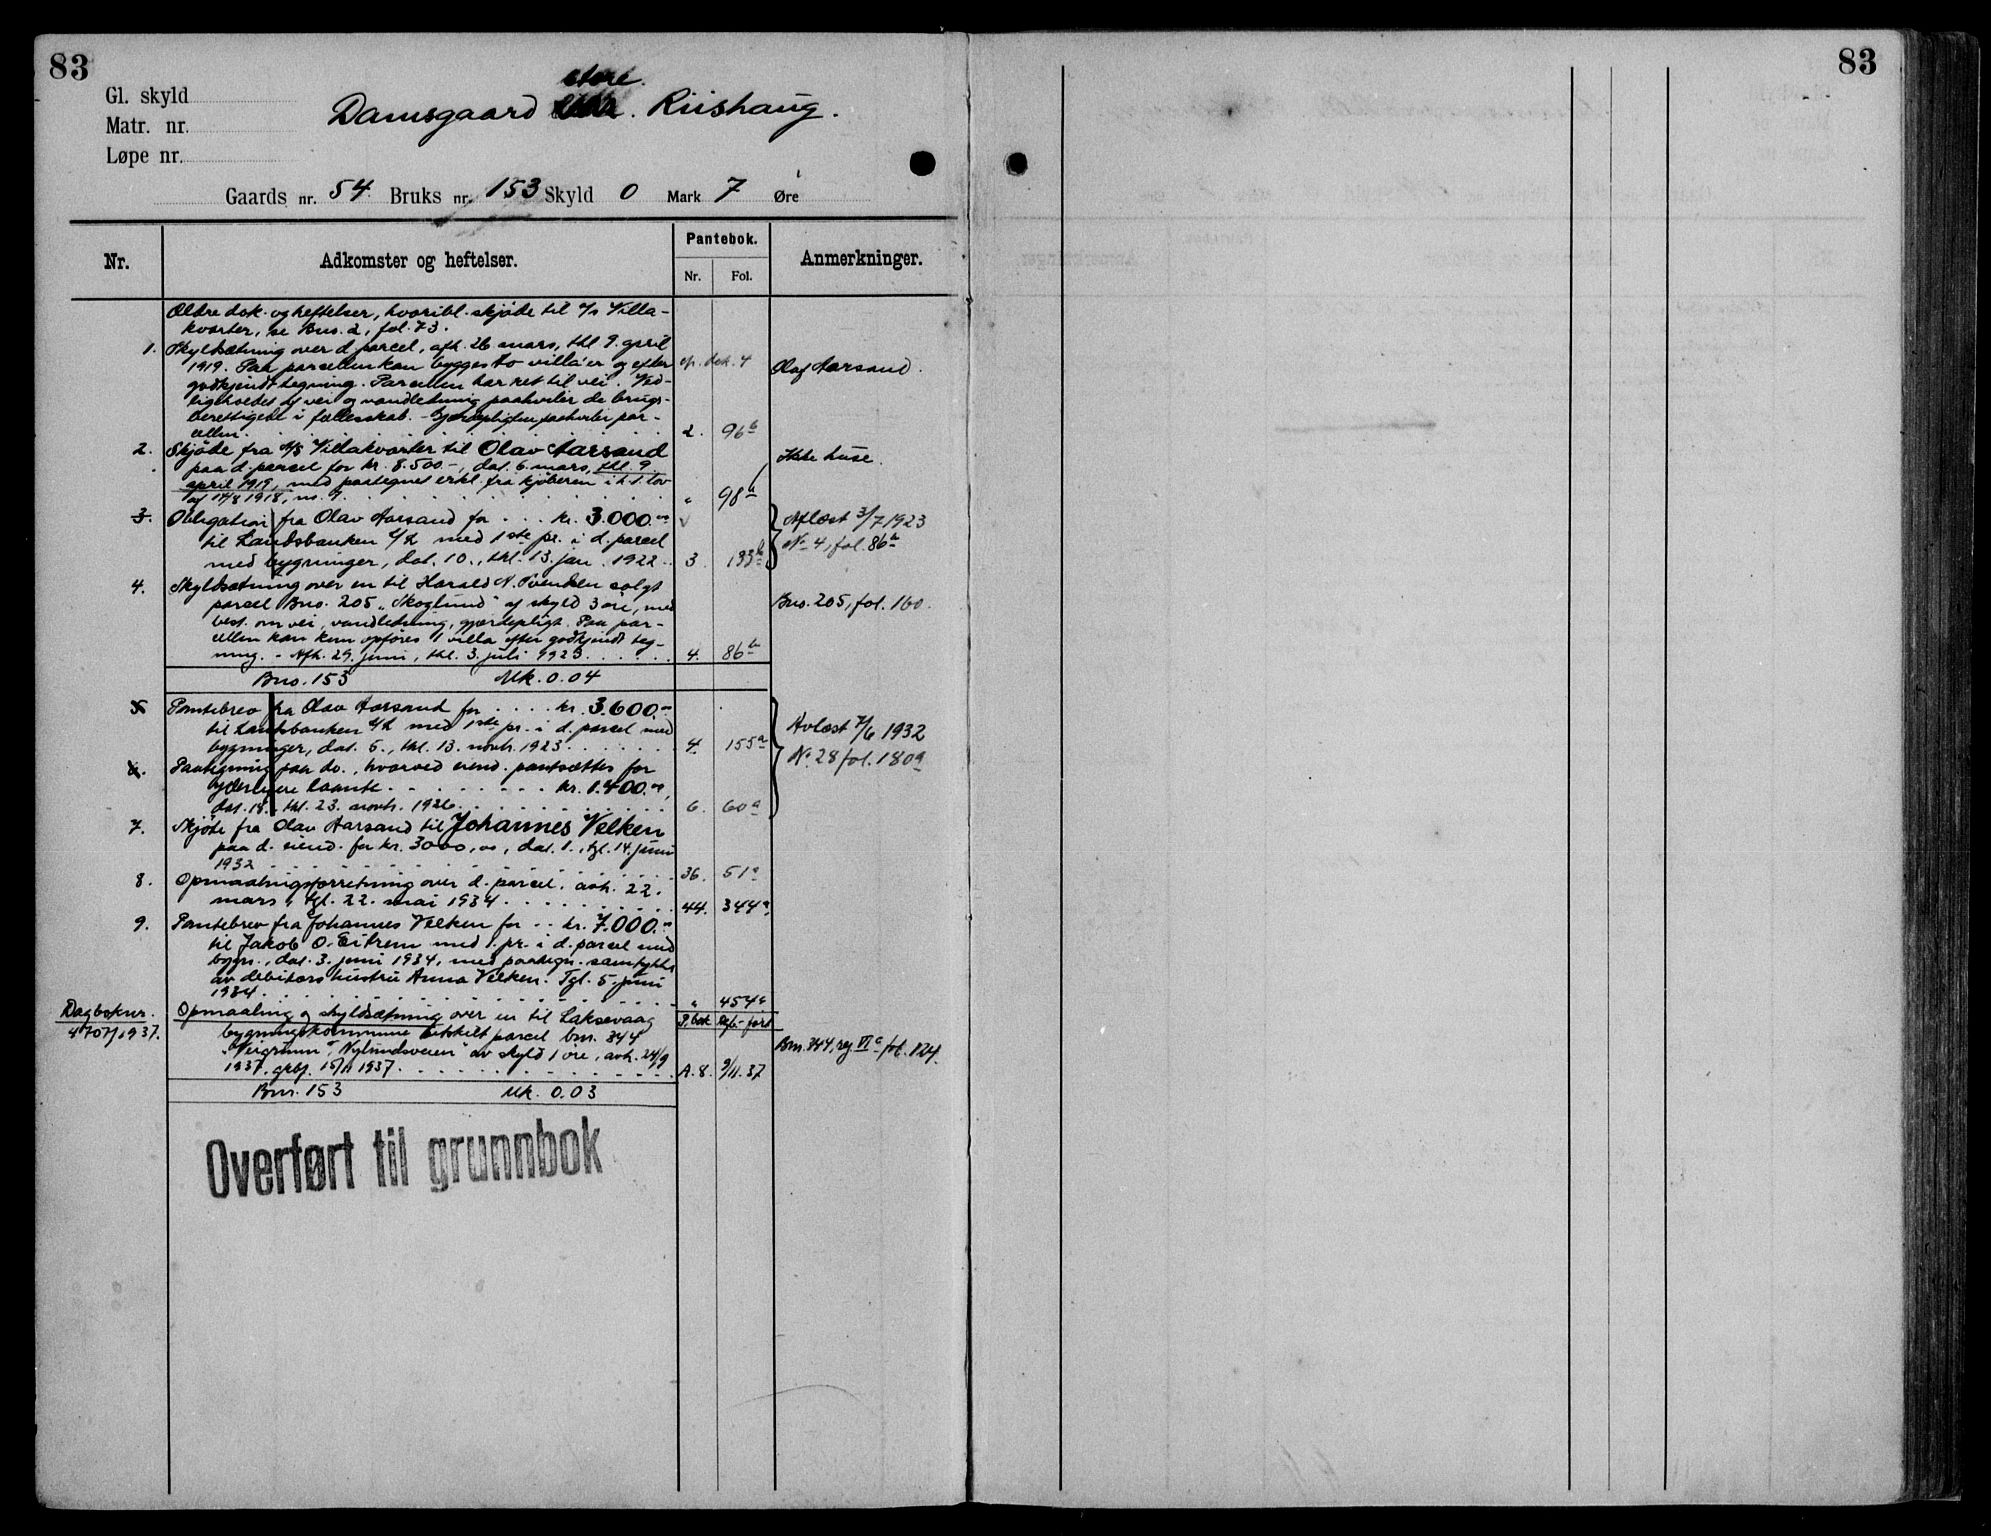 83
83
Gl. skyld
Matr. nr.
Løpe nr.
store.
Damsgaard Riishaug.
Gaards nr. 54. Bruks nr. 153 Skyld 0 Mark 7 Øre
Nr. Adkomster og heftelser. Pantebok. Anmerkninger.
Nr. Fol.
Ældre dok. og heftelser, hvoribl. skjøde til A/s Villa-
kvarter, se Bno. 2, fol. 73.
1. Skyldsætning over d. parcel, afh. 26 mars, thl. 9. april
1919. Paa parcellen kan bygges to villa'er og efter dok. 4 Olaf Aarsand.
godkjendt tegning. Parcellen har ret til vei. Ved-
ligeholdet af vei og vandledning paahviler de brugs-
berettigede i fællesskab. - Gjærdepligten paahviler par-
cellen. 2. 96 b
2. Skjøde fra A/S Villakvarter til Olav Aarsand Ikke huse.
paa d. parcel for kr. 8.500.-, dat. 6. mars, thl. 9.
april 1919, med paategnet erkl. fra kjøberen i h. t. lov
af 1918, nr. 9. " 98
3. Obligation fra Olav Aarsand for . . . kr. 3.000.00 Aflæst 3/7 1923
til Landsbanken A/S med 1ste pr. i d. parcel No 4, fol. 86 b
med bygninger, dat. 10., thl. 13. jan. 1922 . . 3 193 b
4. Skyldsætning over en til Harald N. solgt
parcel Bno. 205 „Skoglund" af skyld 3 øre, med Bno. 205, fol. 160.
best. om vei, vandledning, gjærdepligt. Paa par-
cellen kan kun opføres 1 villa efter godkjendt teg-
ning. - Afh. 29. juni, thl. 3. juli 1923 . . . . . . 4. 86 b
Bno. 153 Mk. 0.04
5. Pantebrev fra Olav Aarsand for . . . . kr. 3.600.00
til Landsbanken A/S med 1ste pr. i d. parcel med Avlæst 7/6 1932
bygninger, dat. 5., thl. 13. novbr. 1923 . . . . . . . 4. 155 a
6. Paategning paa do., hvorved eiend. pantsættes for No. 28 fol. 180 a
yderligere laante . . . . . . . . kr. 1.400.00,
dat. 18., thl. 23. novbr. 1926 . . . . . . . . . . 6. 60 a
7. Skjøte fra Olav Aarsand til Johannes Velken
paa d. eiend. for kr. 3000,00, dat. 1., tgl. 14. juni
1932 . . . . . . . . . . . . 36. 51 a
8. Opmaalingsforretning over d. parcel, avh. 22.
mars, tgl. 22. mai 1934 . . . . . . . . . 44. 344 a
9. Pantebrev fra Johannes Velken for . . kr. 7.000.00
til Jakob O. Eitrem med 1. pr. i d. parcel med
bygn., dat. 3. juni 1934, med paategn. samtykke
av debitors hustru Anna Velken. Tgl. 5. juni
1934 . . . . . . . . . . . . " 454 a
Dagboknr. Opmaaling og skyldsætning over en til Laksevaag P.bok
4707/1937. bygningskommune utskilt parcel bnr. 344
„Veigrunn", Nylundsveien" av skyld 1 øre, avh. 24/9 Bnr. 344, reg VI c fol. 124.
1937, grbf. 15/11 1937 . . . . . . . . . . A. 8. 9/11. 37
Bnr. 153 Mk. 0.03
Overført til grunnbok